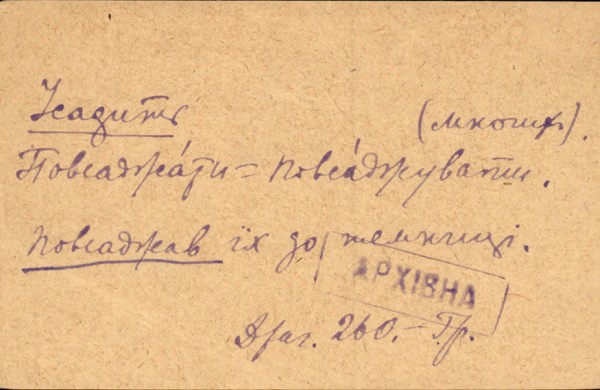 Усадить (множ).
Повсаджа́ти = Повса́джувати.
Повсаджав їх до темниці.
АРХІВНА
Драг. 260. – Гр.